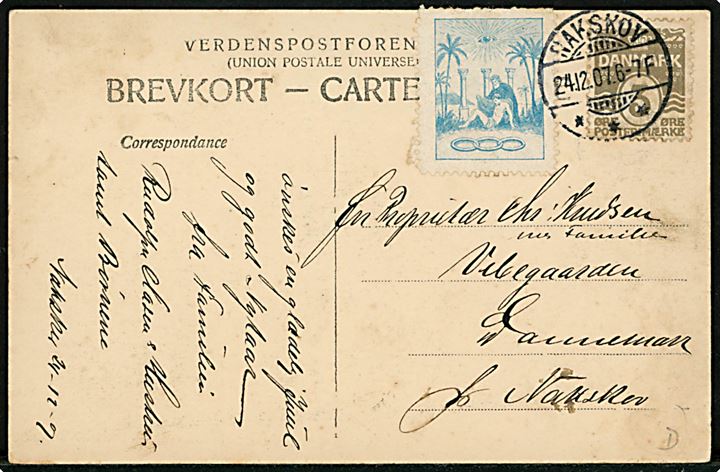 VERDENSPOSTFOREN
(UNION POSTALE UNIVERSE
BREVKORT — CARTE
NAKSKOV
24.12.07. 6-7 F
DANMARK
ØRE ØRE
POSTFRIMÆRKE
Correspondance
önskes en glædelig Juul
og godt Nytaar
fra Familien
Rudolph Olsen & Hustru
samt Börnene
Nakskov 24-12-07.
Hr Proprietær Chr: Knudsen
med Familie
Vibegaarden
Dannemare
pr Nakskov
D